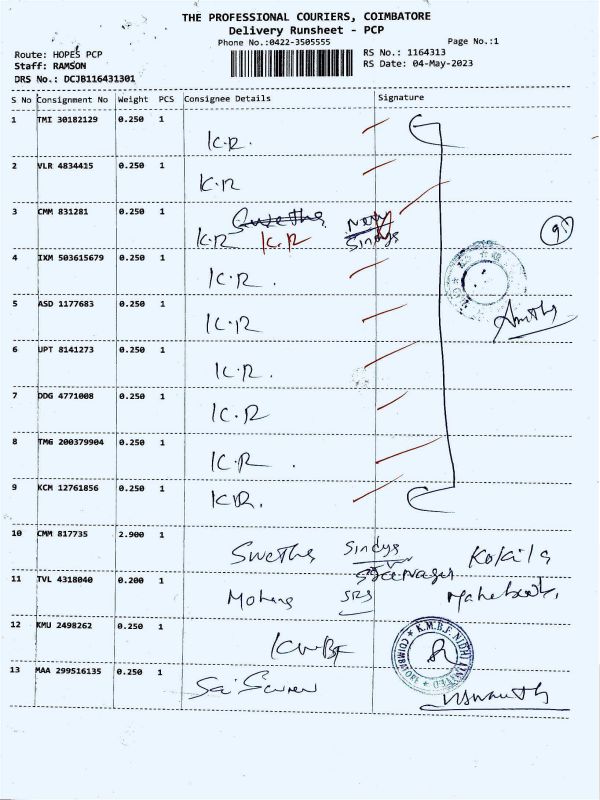 THE PROFESSIONAL COURIERS, COIMBATORE
Delivery Runsheet - PCP
Phone No.:0422-3505555
Page No.:1
Route: HOPES PCP
RS No.: 1164313
Staff: RAMSON
RS Date: 04-May-2023
DRS No.: DCJB116431301
S No Consignment No Weight PCS Consignee Details Signature
1 TMI 30182129 0.250 1
K.R.
2 VLR 4834415 0.250 1
K.R
3 CMM 831281 0.250 1
Swetha
K.R K.R Sindys
4 IXM 503615679 0.250 1
K.R.
5 ASD 1177683 0.250 1
K.R
6 UPT 8141273 0.250 1
K.R.
7 DDG 4771008 0.250 1
K.R
8 TMG 200379904 0.250 1
K.R.
9 KCM 12761856 0.250 1
K.R.
10 CMM 817735 2.900 1
Swetha Sindys Kokila
11 TVL 4318040 0.200 1
Mohans SRS
12 KMU 2498262 0.250 1
KMBF
K.M.B.F. NIDHI LIMITED
COIMBATORE
13 MAA 299516135 0.250 1